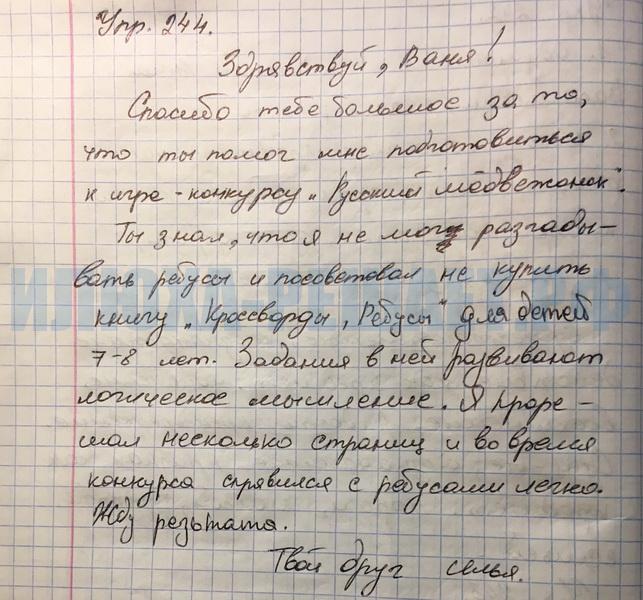 Упр. 244.
Здрявствуй, Ваня!
Спасибо тебе большое за то,
что ты помог мне подготовиться
к игре-конкурсу „Русский медвежонок".
Ты знал, что я не могу разгады-
вать ребусы и посоветовал не купить
книгу „Кроссворды, Ребусы" для детей
7-8 лет. Задания в ней развивают
логическое мышление. Я проре-
шал несколько страниц и во время
конкурса спрявился с ребусами легко.
Жду резьтата.
Твой друг селья.